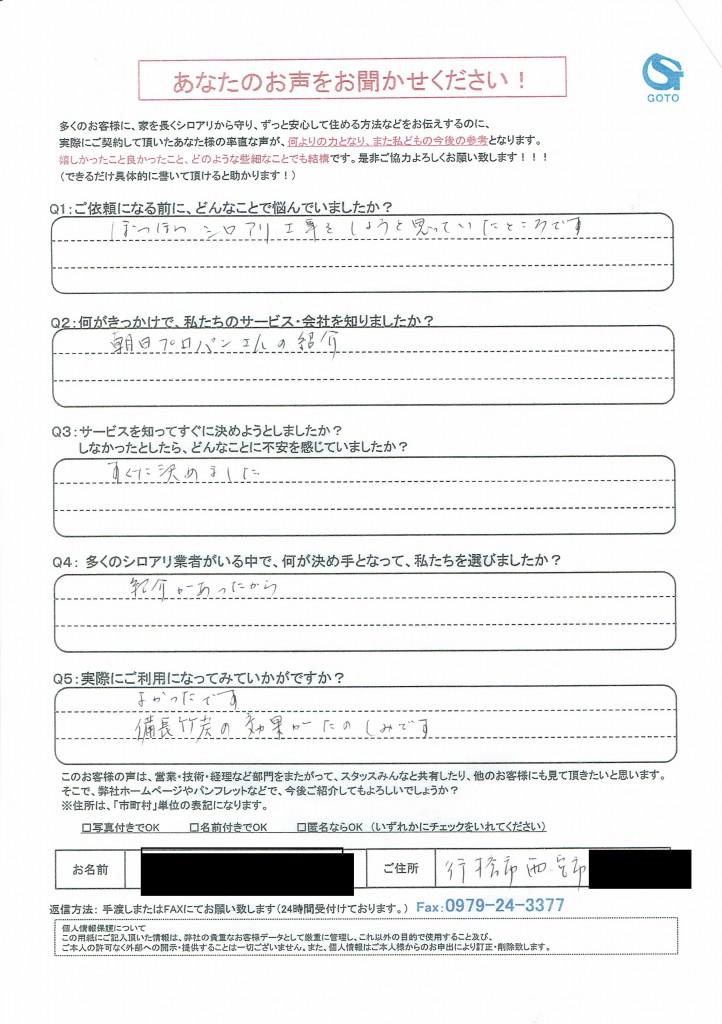 あなたのお声をお聞かせください！
GOTO
多くのお客様に、家を長くシロアリから守り、ずっと安心して住める方法などをお伝えするのに、
実際にご契約して頂いたあなた様の率直な声が、何よりの力となり、また私どもの今後の参考となります。
嬉しかったこと良かったこと、どのような些細なことでも結構です。是非ご協力よろしくお願い致します！！！
（できるだけ具体的に書いて頂けると助かります！）
Q1：ご依頼になる前に、どんなことで悩んでいましたか？
ぼつぼつ シロアリ工事をしようと思っていたところです
Q2：何がきっかけで、私たちのサービス・会社を知りましたか？
朝日プロパンさんの紹介
Q3：サービスを知ってすぐに決めようとしましたか？
しなかったとしたら、どんなことに不安を感じていましたか？
すぐに決めました
Q4： 多くのシロアリ業者がいる中で、何が決め手となって、私たちを選びましたか？
紹介があったから
Q5：実際にご利用になってみていかがですか？
よかったです
備長竹炭の効果がたのしみです
このお客様の声は、営業・技術・経理など部門をまたがって、スタッスみんなと共有したり、他のお客様にも見て頂きたいと思います。
そこで、弊社ホームページやパンフレットなどで、今後ご紹介してもよろしいでしょうか？
※住所は、「市町村」単位の表記になります。
□写真付きでOK □名前付きでOK □匿名ならOK （いずれかにチェックをいれてください）
お名前 ご住所 行橋市西宮市
返信方法： 手渡しまたはFAXにてお願い致します（24時間受付ております。） Fax：0979-24-3377
個人情報保護について
この用紙にご記入頂いた情報は、弊社の貴重なお客様データとして厳重に管理し、これ以外の目的で使用すること及び、
ご本人の許可なく外部への開示・提供することは一切ございません。また、個人情報はご本人様からのお申出により訂正・削除致します。